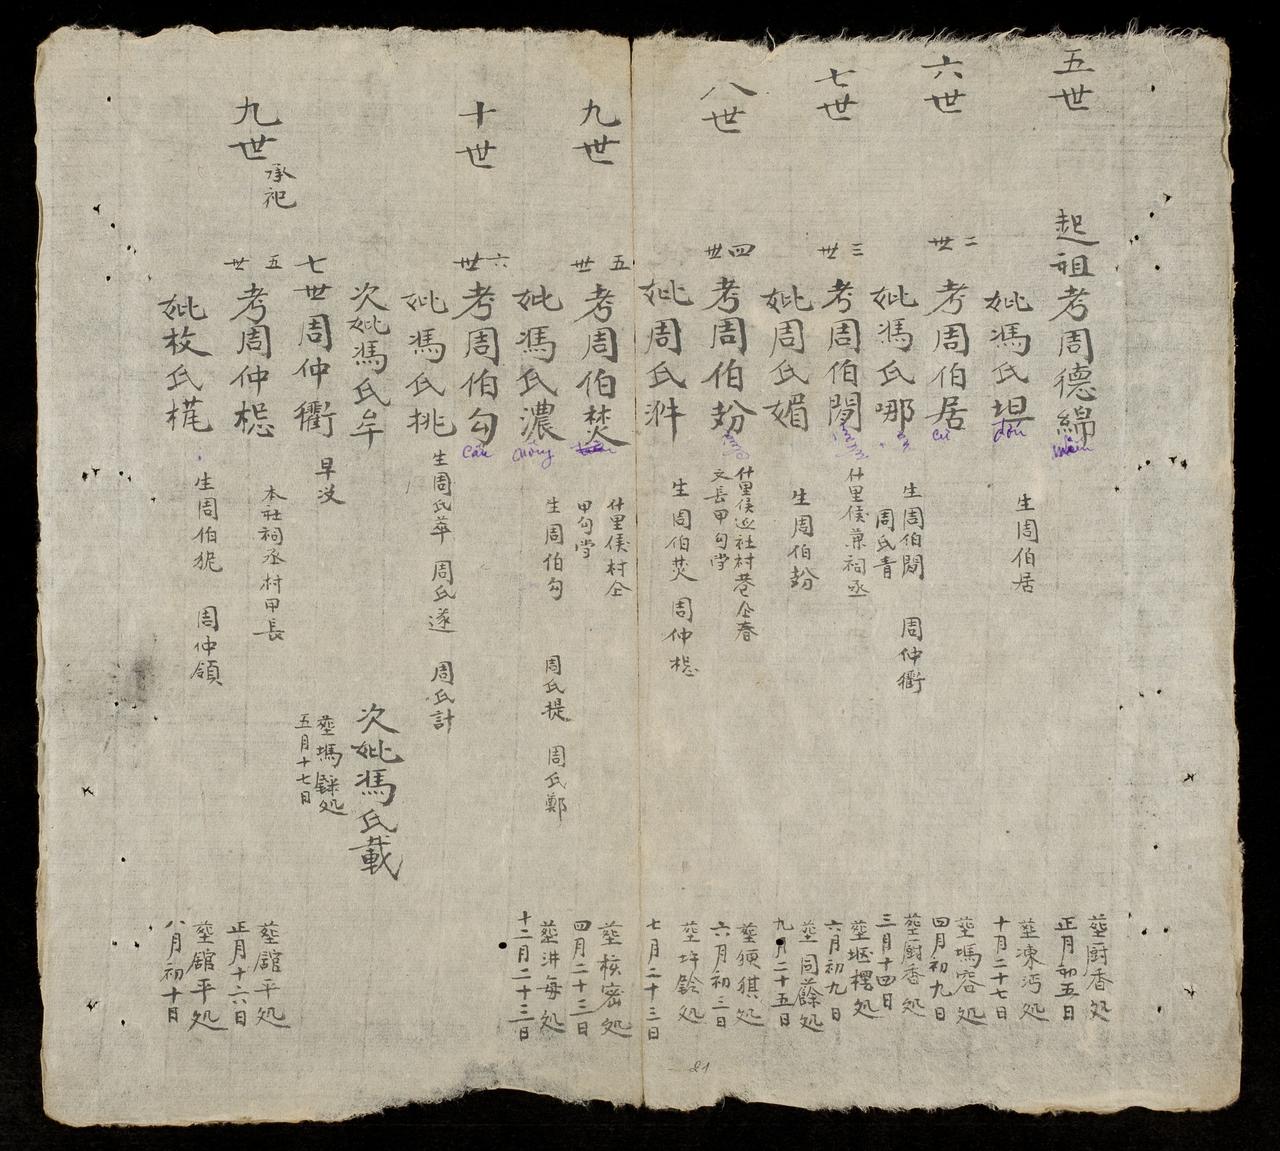 五世
起祖考周德綿
miên
塟厨香処
正月初五日
妣馮氏坦
đán
生周伯居
塟凍沔処
十月二十七日
六世
二世
考周伯居
cư
塟瑪容処
四月初九日
妣馮氏哪
生周伯閲 周仲衢
周氏青
塟厨香処
三月十四日
七世
三世
考周伯閲
什里侯兼祠丞
塟堰楞処
六月初九日
妣周氏媚
生周伯𢾭
塟同蒢処
九月二十五日
八世
四世
考周伯
什里侯巡社村巷仝春
文長甲句当
六月初三日
妣周氏汼
生周伯焚 周仲樬
塟圩鈴処
七月二十三日
九世
五世
考周伯焚
什里侯村仝
甲句当
塟核密処
四月二十三日
妣馮氏濃
nồng
生周伯勾 周氏提 周氏鄭
塟汫每処
十二月二十三日
十世
六世
考周伯勾
câu
妣馮氏挑
生周氏萃 周氏遂 周氏計
次妣馮氏牟
次妣馮氏載
七世周仲衢
早没
塟瑪銇処
五月十七日
九世
承祀
五世
考周仲樬
本社祠丞村甲長
塟舘平処
正月十六日
妣枚氏桹
生周伯狔 周仲領
塟舘平処
八月初十日
21